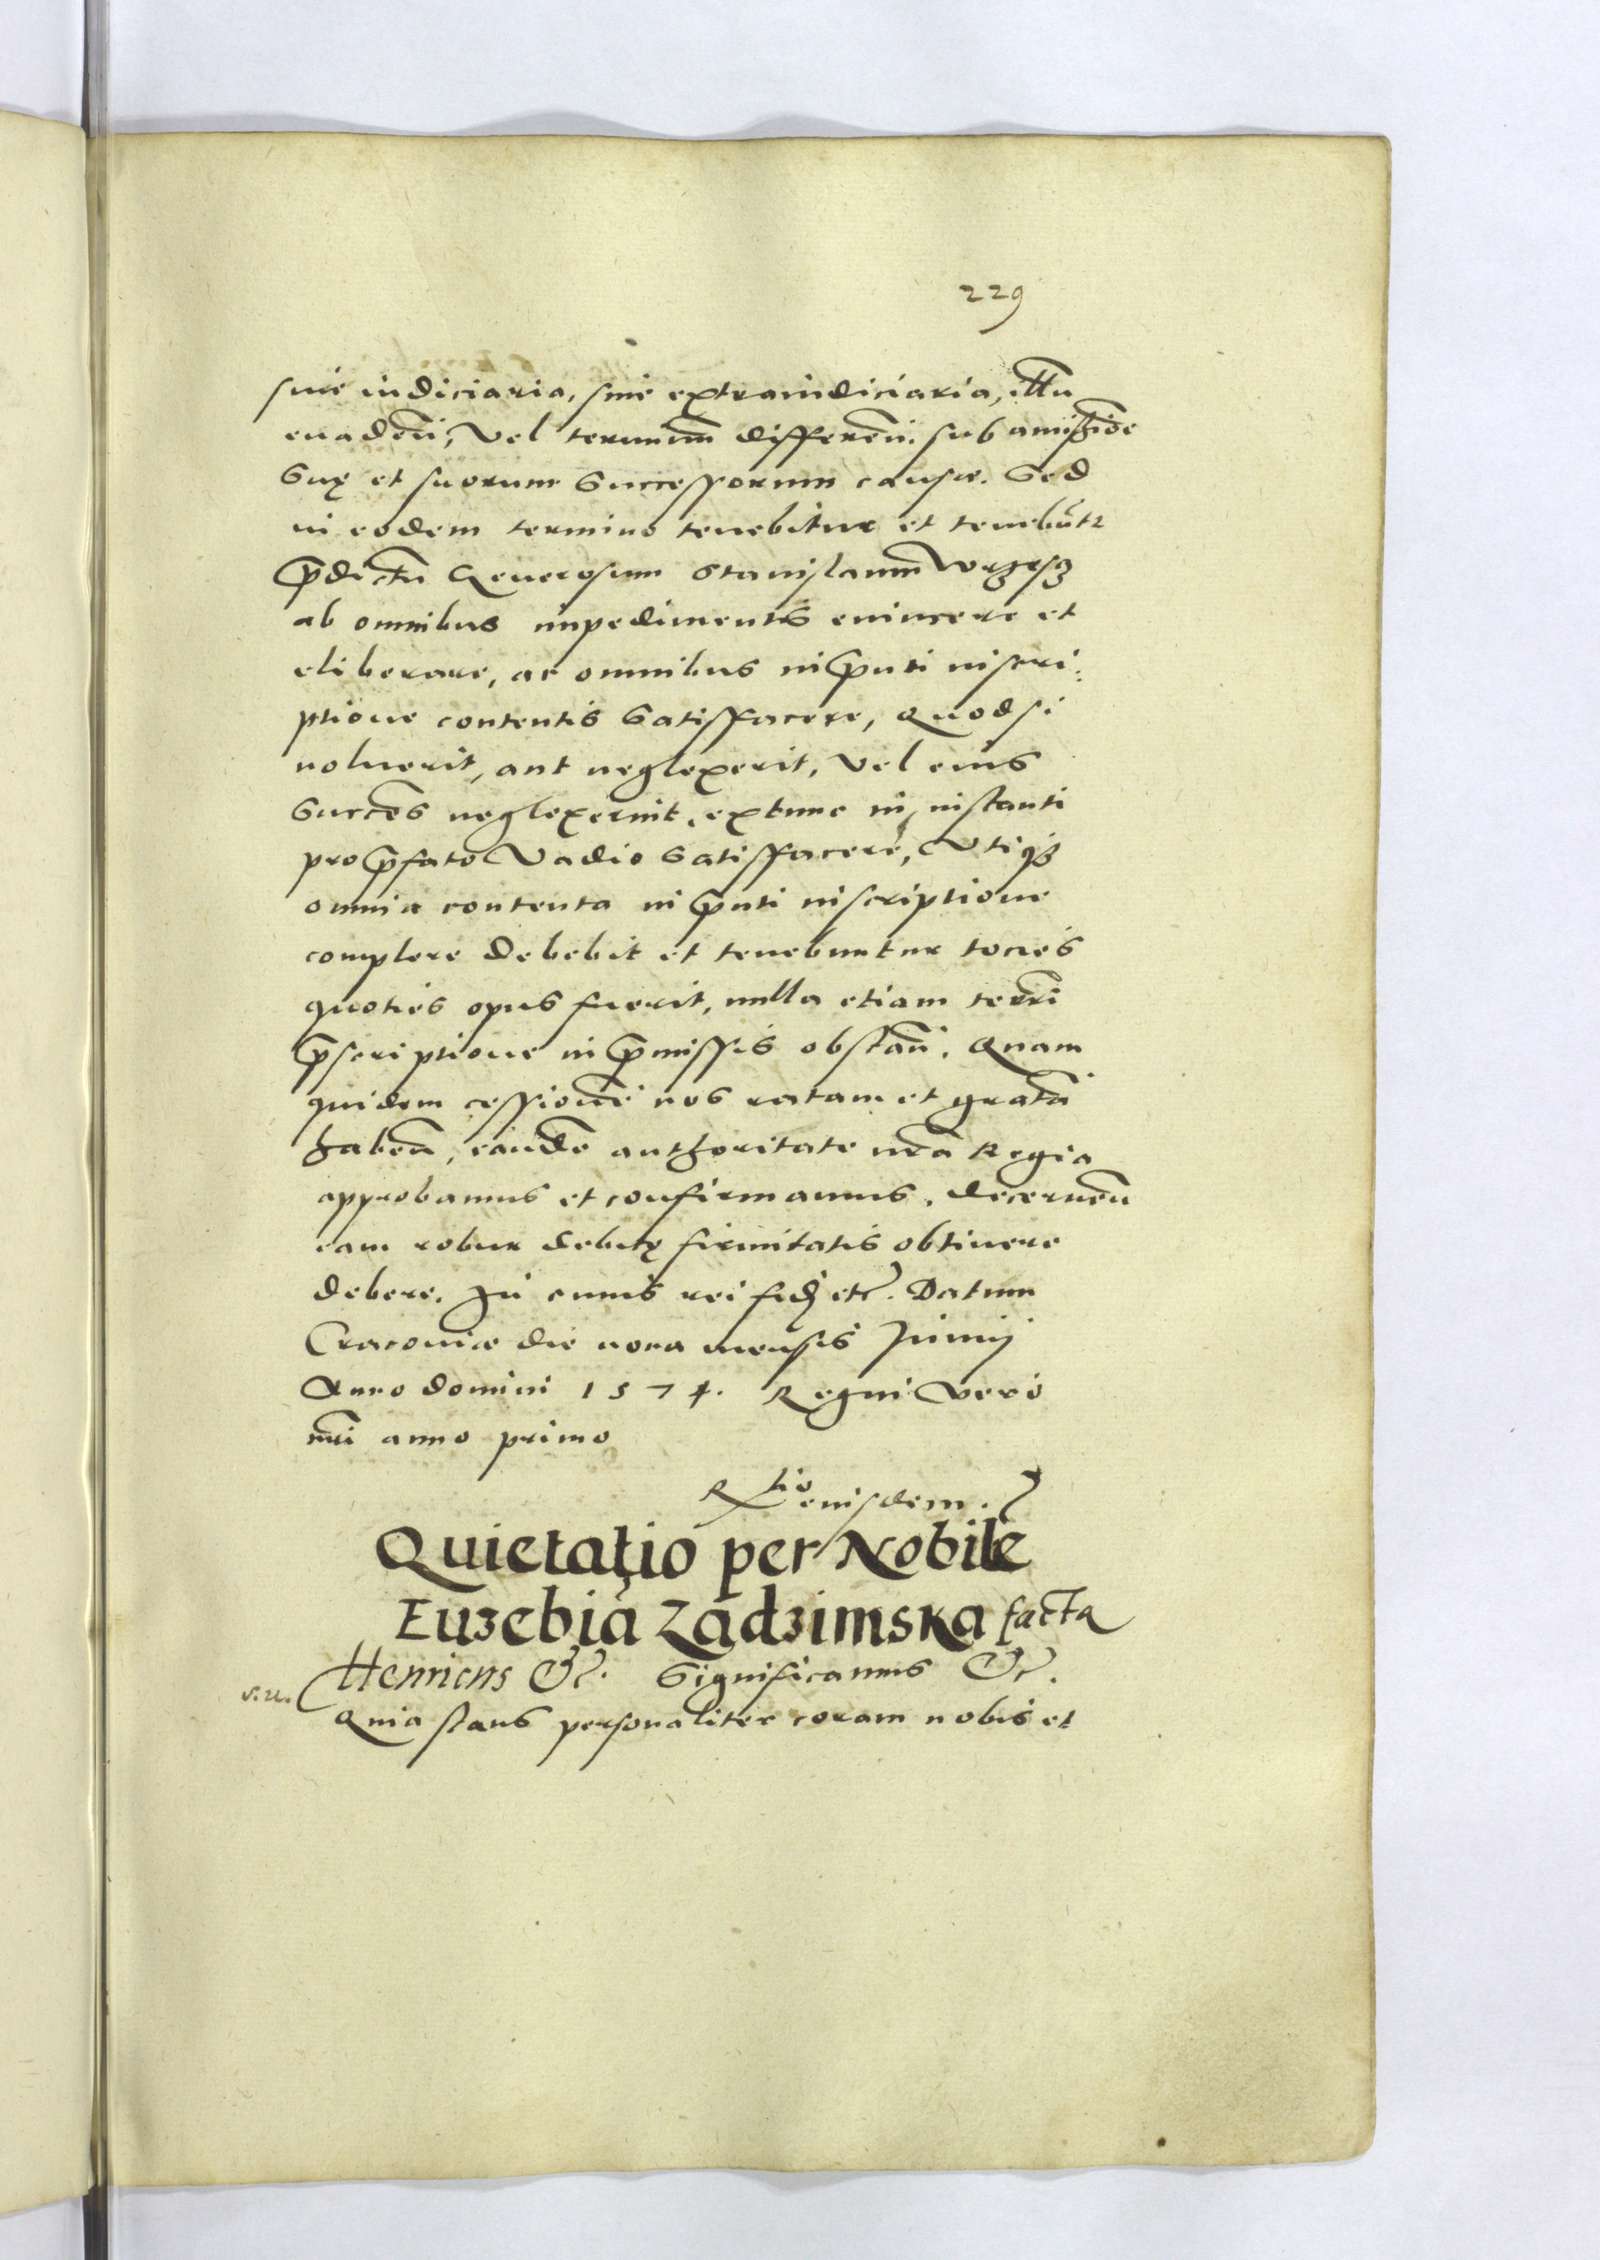 229
siue iudiciaria, siue extraiudiciaria, illu
euadeñ, Vel terminũ differeñ. sub amissiõe
suę et suorum Successorum causæ. Sed
in eodem termino tenebitur et tenebũtr
p̃dictũ Generosum Stanislaum Wrzesz
ab omnibus impedimentis euincere et
eliberare, ac omnibus in p̃nti inscri:
ptione contentis Satisfacere, Quod si
noluerit, aut neglexerit, Vel eius
Succẽs neglexerint, extunc in instanti
pro p̃fato Vadio Satisfacere, Vtiq3
omnia contenta in p̃nti inscriptione
complere debebit et tenebuntur tocies
quoties opus fuerit, nulla etiam terrĩ
p̃scriptione in p̃missis obstañ. Quam
quidem cessionẽ nos ratam et gratã
habeñ, eandẽ authoritate nrã Regia
approbamus et confirmamus, decerneñ
eam robur debitę firmitatis obtinere
debere. In cuius rei fidẽ etc. Datum
Cracouiæ die nona mensis Junij
Anno domini 1574. Regni vero
nrĩ anno primo
Rtio eiusdem.
Quietatio per Nobilẽ
Euzebią Zadzimska facta
Henricus &c. Significamus &c.
Quia stans personaliter coram nobis et